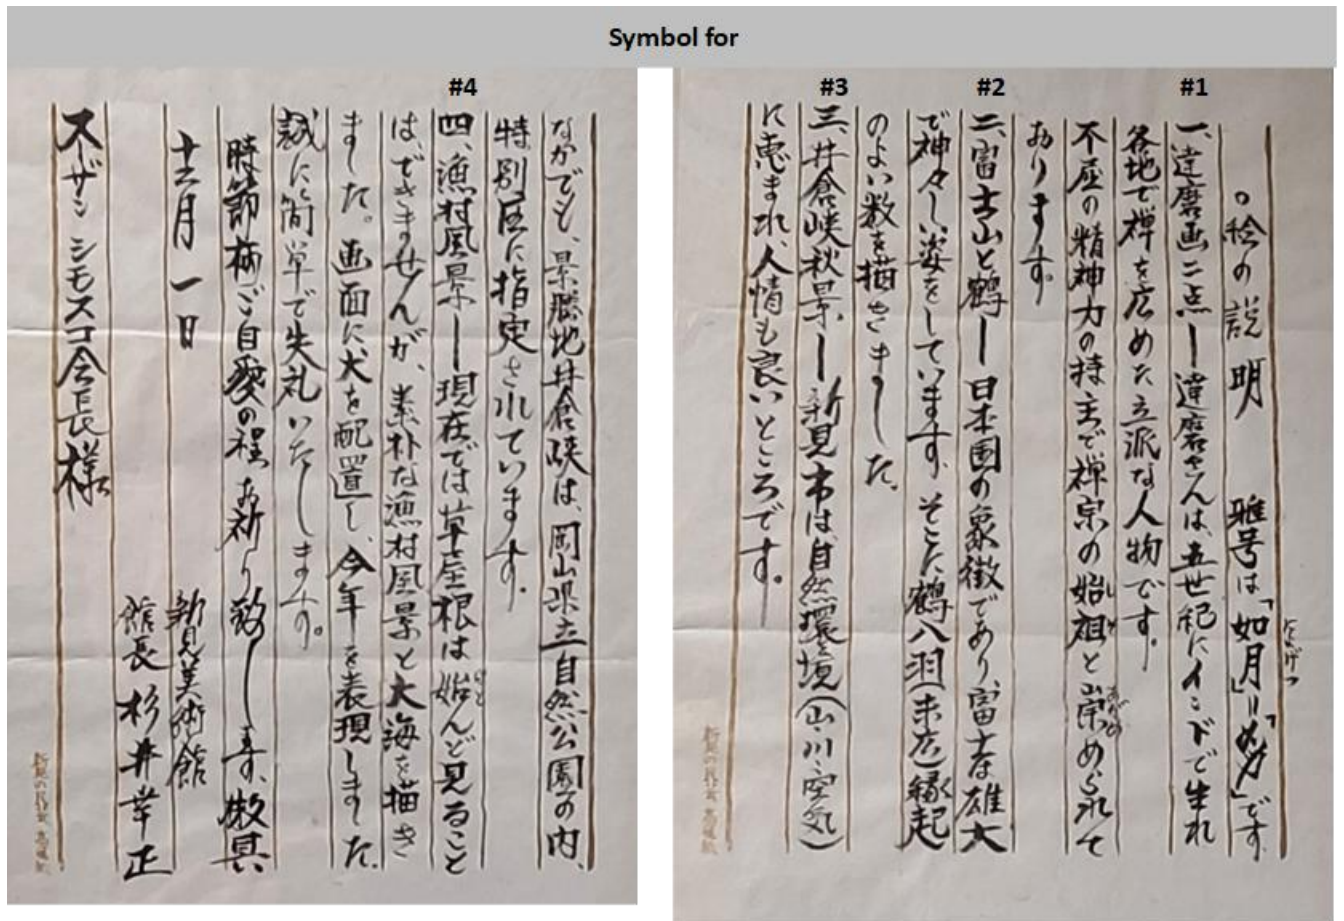 Symbol for
#1
#2
#3
#4
○絵の説明　雅号は「如月」＝「きさらぎ」です
一、達磨画二点ー達磨さんは、五世紀にインドで生れ
各地で禅を広めた立派な人物です。
不屈の精神力の持主で禅宗の始祖と崇められて
おります。
二、富士山と鶴ー日本国の象徴であり、富士は雄大
で神々しい姿をしています。そこに鶴八羽(末広)縁起
のよい数を描きました。
三、井倉峡秋景ー新見市は自然環境(山・川・空気)
に恵まれ、人情も良いところです。
なかでも、景勝地井倉峡は、岡山県立自然公園の内、
特別区に指定されています。
四、漁村風景ー現在では草屋根は殆んど見ること
は、できませんが、素朴な漁村風景と大海を描き
ました。画面に、犬を配置し、今年を表現しました。
誠に簡単で失礼いたします。
時節柄ご自愛の程お祈り致します。敬具
十二月一日
新見美術館
館長 杉井幸正
スーザン シモスコ会長様